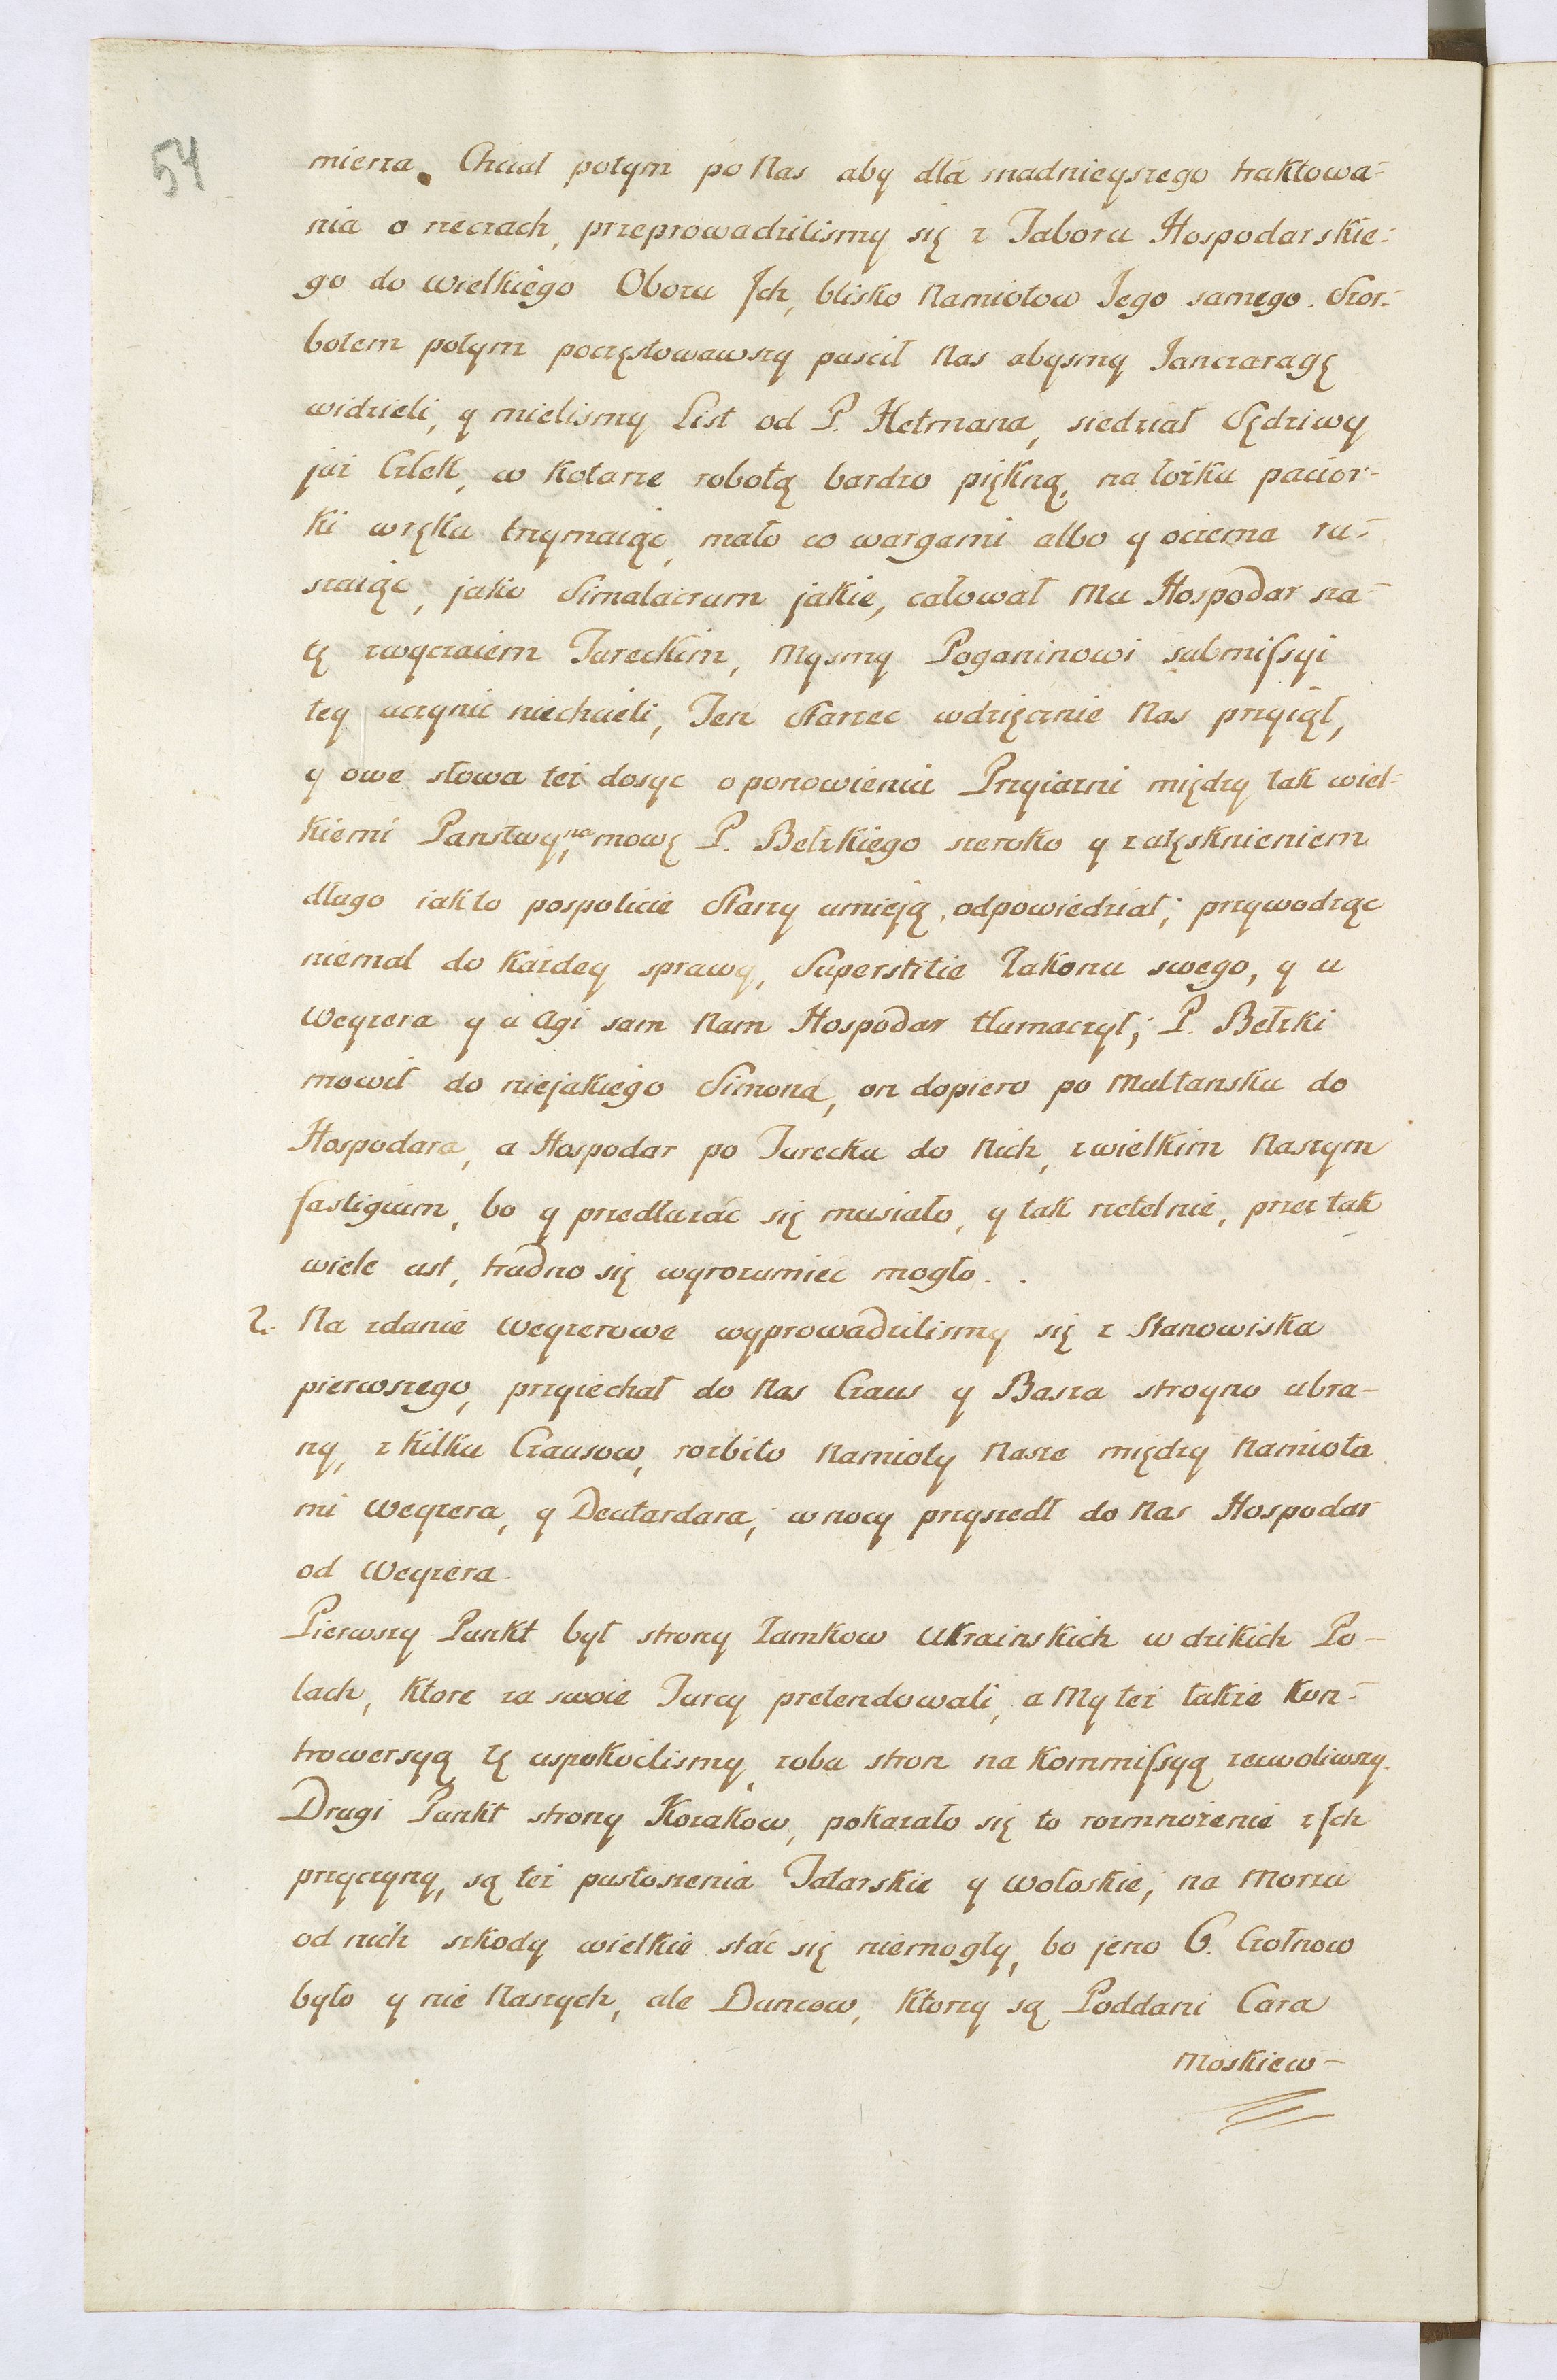 54
mierza. Chciał potym po Nas aby dla snadnieyszego traktowa-
nia o rzeczach, przeprowadzilismy się z Taboru Hospodarskie-
go do wielkiego Obozu Ich, blisko Namiotow Jego samego. Szor-
botem potym poczęstowawszy puscił Nas abysmy Janczaragę
widzieli, y mielismy List od P. Hetmana, siedział Sędziwy
już Człek, w Kotarze robotą bardzo piękną, na łóżku pacior-
ki wręku trzymaiąc, mało co wargami albo y oczema ru-
szaiąc, jako Simulacrum jakie, całował Mu Hospodar sza-
tę zwyczaiem Tureckim, Mysmy Poganinowi submissyi
tey uczynic niechcieli, Ten Starzec wdzięcznie Nas przyiął,
y owe słowa też dosyc o ponowieniu Przyiazni między tak wiel-
kiemi Panstwy, na mowę P. Bełzkiego szeroko y z utęsknieniem
długo iakto pospolicie Starzy umieją, odpowiedział; przywodząc
niemal do każdey sprawy, Superstitie Zakonu swego, y u
Weyzera y u Agi sam Nam Hospodar tłumaczył; P. Bełzki
mowił do niejakiego Simona, on dopiero po Multansku do
Hospodara, a Hospodar po Turecku do Nich, z wielkim Naszym
fastigium, bo y przedłużać się musiało, y tak rzetelnie, przez tak
wiele ust, trudno się wyrozumiec mogło.
2. Na zdanie Weyzerowe wyprowadzilismy się z Stanowiska
pierwszego, przyiechał do Nas Czaus y Basza stroyno ubra-
ny, z Kilku Czausow, rozbito Namioty Nasze między Namiota
mi Weyzera, y Deutardara, w nocy przyszedł do Nas Hospodar
od Weyzera.
Pierwszy Punkt był strony Zamkow Ukrainskich w dzikich Po-
lach, Ktore za swoie Turcy pretendowali, a My też takze Kon-
trowersyą tę uspokoilismy, zobu stron na Kommissyą zezwoliwszy.
Drugi Punkt strony Kozakow, pokazało się to rozmnożenie z Ich
przyczyny, są też pustoszenia Tatarskie y Wołoskie, na Morzu
od nich szkody wielkie stać się niemogły, bo jeno 6. Czołnow
było y nie Naszych, ale Duncow, Ktorzy są Poddani Cara
Moskiew-